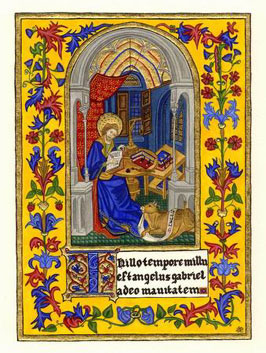 IN illo tempore miſſu
eſt angelus gabriel
a deo in ciuitatem